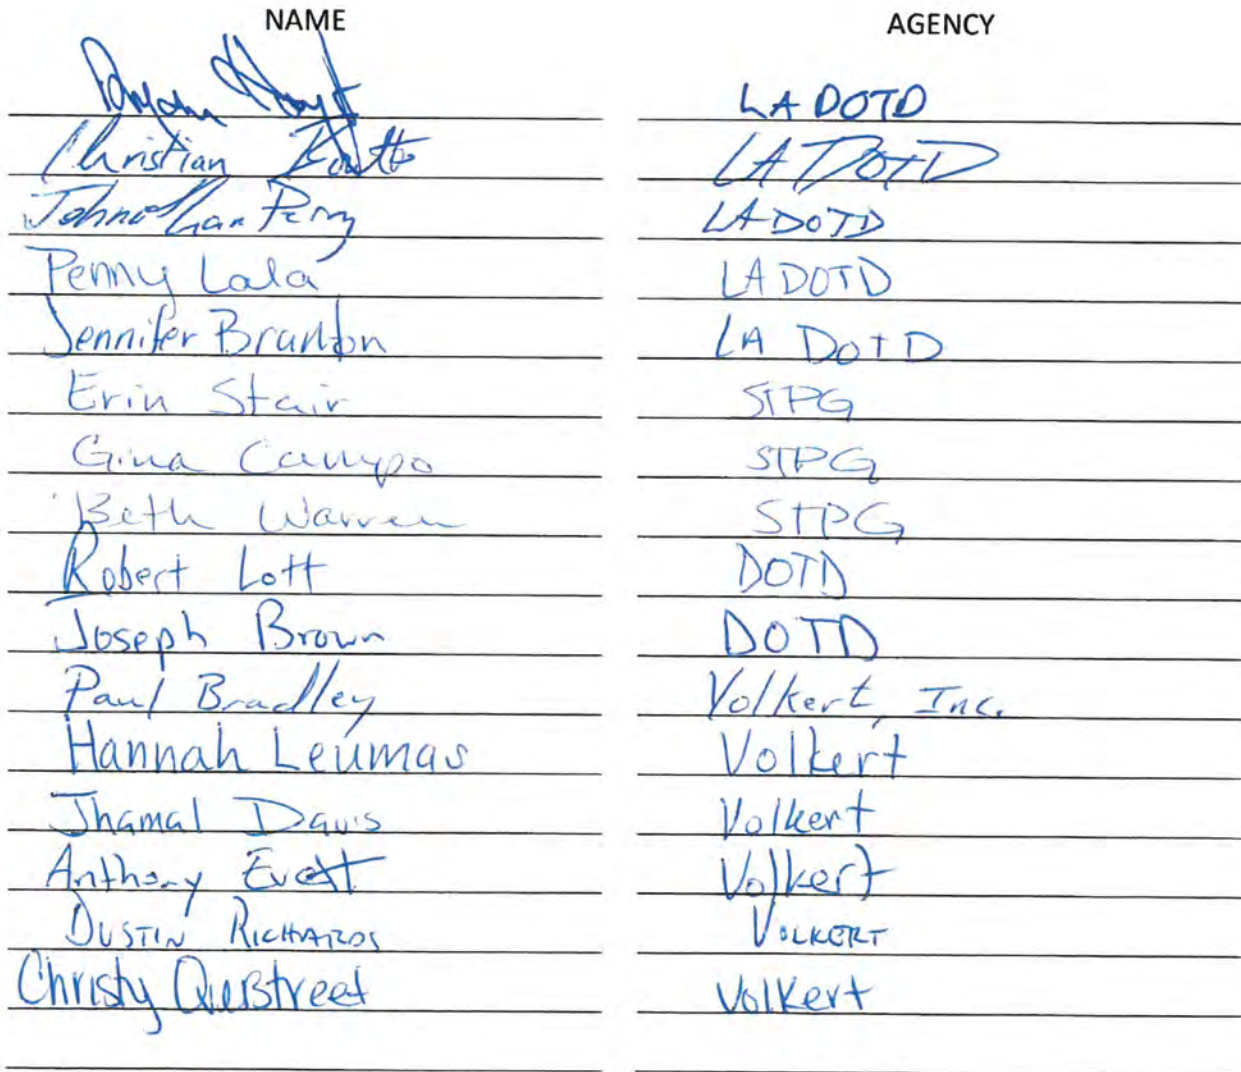 NAME AGENCY
LA DOTD
Christian LA DOTD
Johnathan Perry LA DOTD
Penny Lala LA DOTD
Jennifer Branton LA DOTD
Erin Stair STPG
Gina Campo STPG
Beth Warren STPG
Robert Lott DOTD
Joseph Brown DOTD
Paul Bradley Volkert, Inc.
Hannah Leumas Volkert
Jhamal Davis Volkert
Anthony Evett Volkert
DUSTIN RICHARDS VOLKERT
Christy Volkert